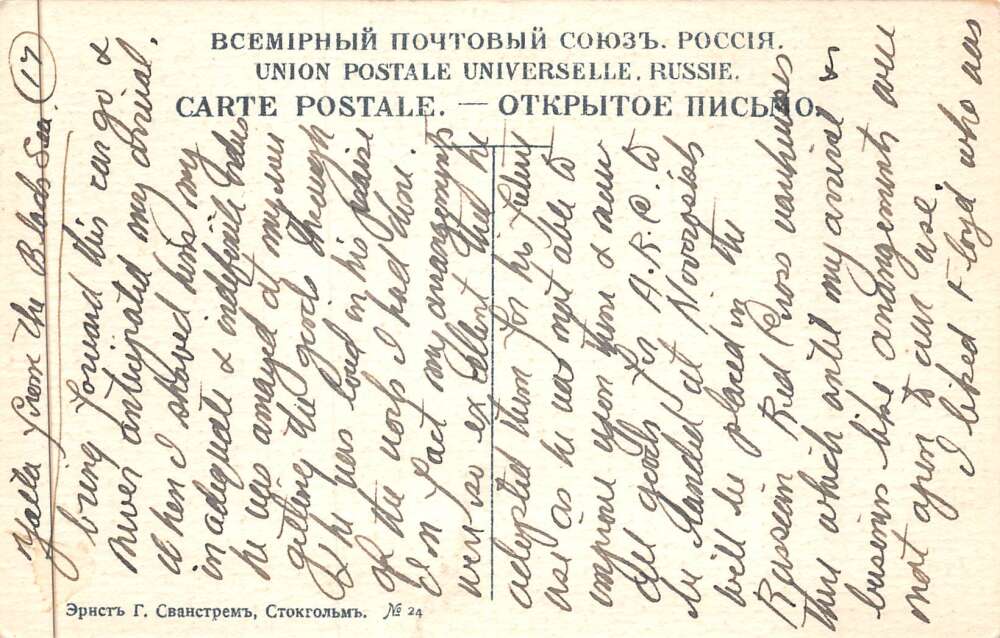 ВСЕМІРНЫЙ ПОЧТОВЫЙ СОЮЗЪ. РОССІЯ.
UNION POSTALE UNIVERSELLE. RUSSIE.
CARTE POSTALE. — ОТКРЫТОЕ ПИСЬМО.
Yalta from the Black Sea. 17
bring forward this cargo &
never anticipated my arrival.
When I showed him my
inadequate & indefinite
he was amazed at my even
getting the goods through
& he was loud in his praise
of the work I had done.
In fact my arrangements
were so excellent that he
adopted them for his future
use as he was not able to
improve upon them & now
all goods for A. R. C. to
be landed at Novorossisk
will be placed in the
Russian Red Cross warehouses
there which until my arrival &
business like arrangements were
not open to our use.
I liked Floyd who was
Эрнстъ Г. Сванстремъ, Стокгольмъ. № 24